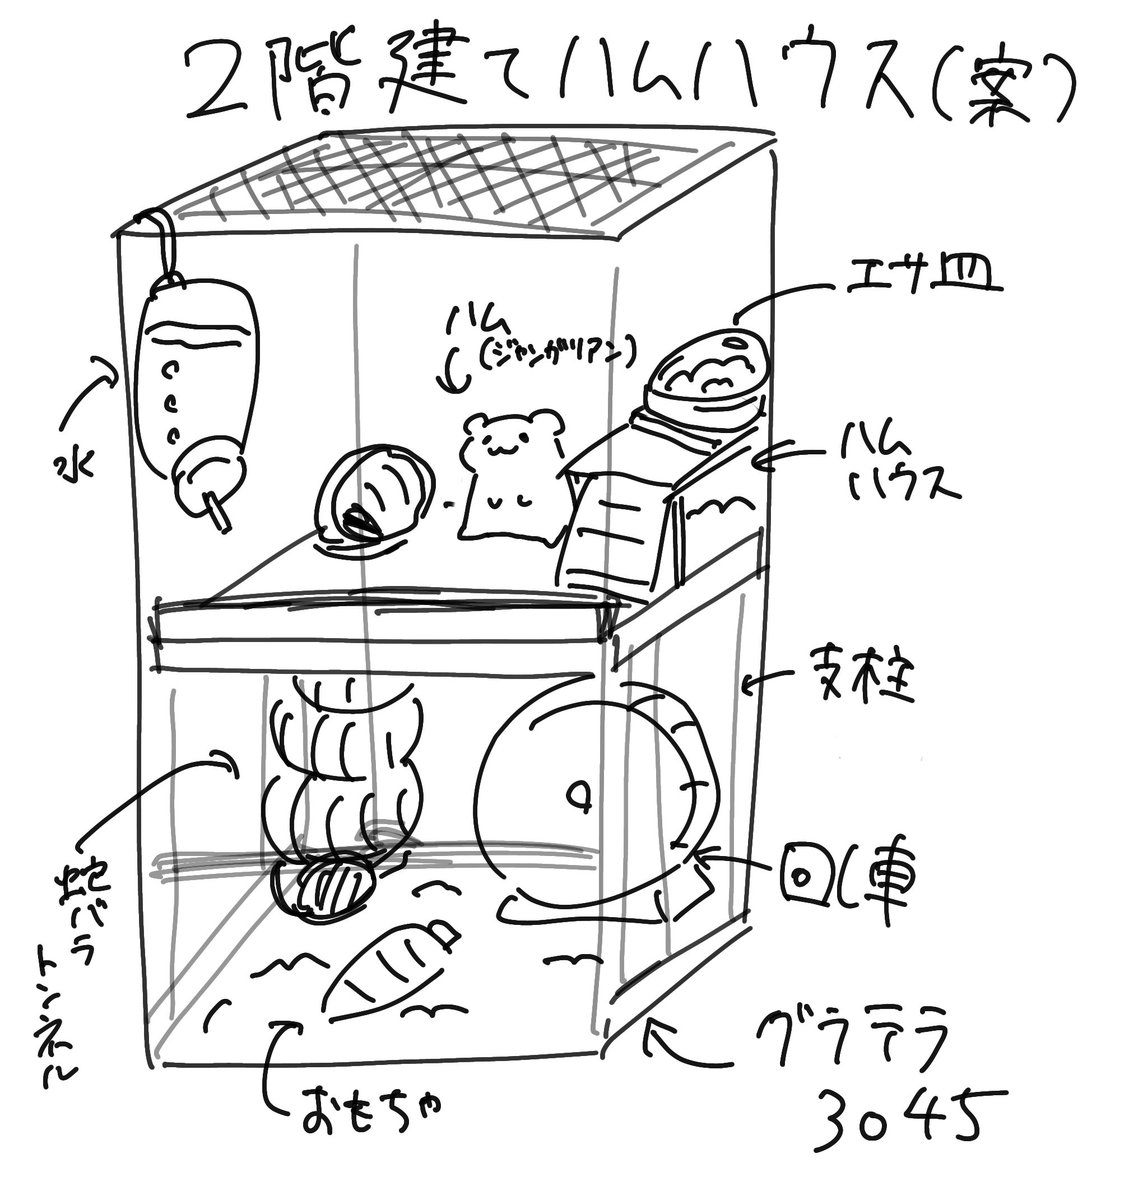 2階建てハムハウス(案)
エサ皿
ハム
(ジャンガリアン)
水
ハム
ハウス
支柱
蛇バラ
トンネル
回し車
グラテラ
3045
おもちゃ